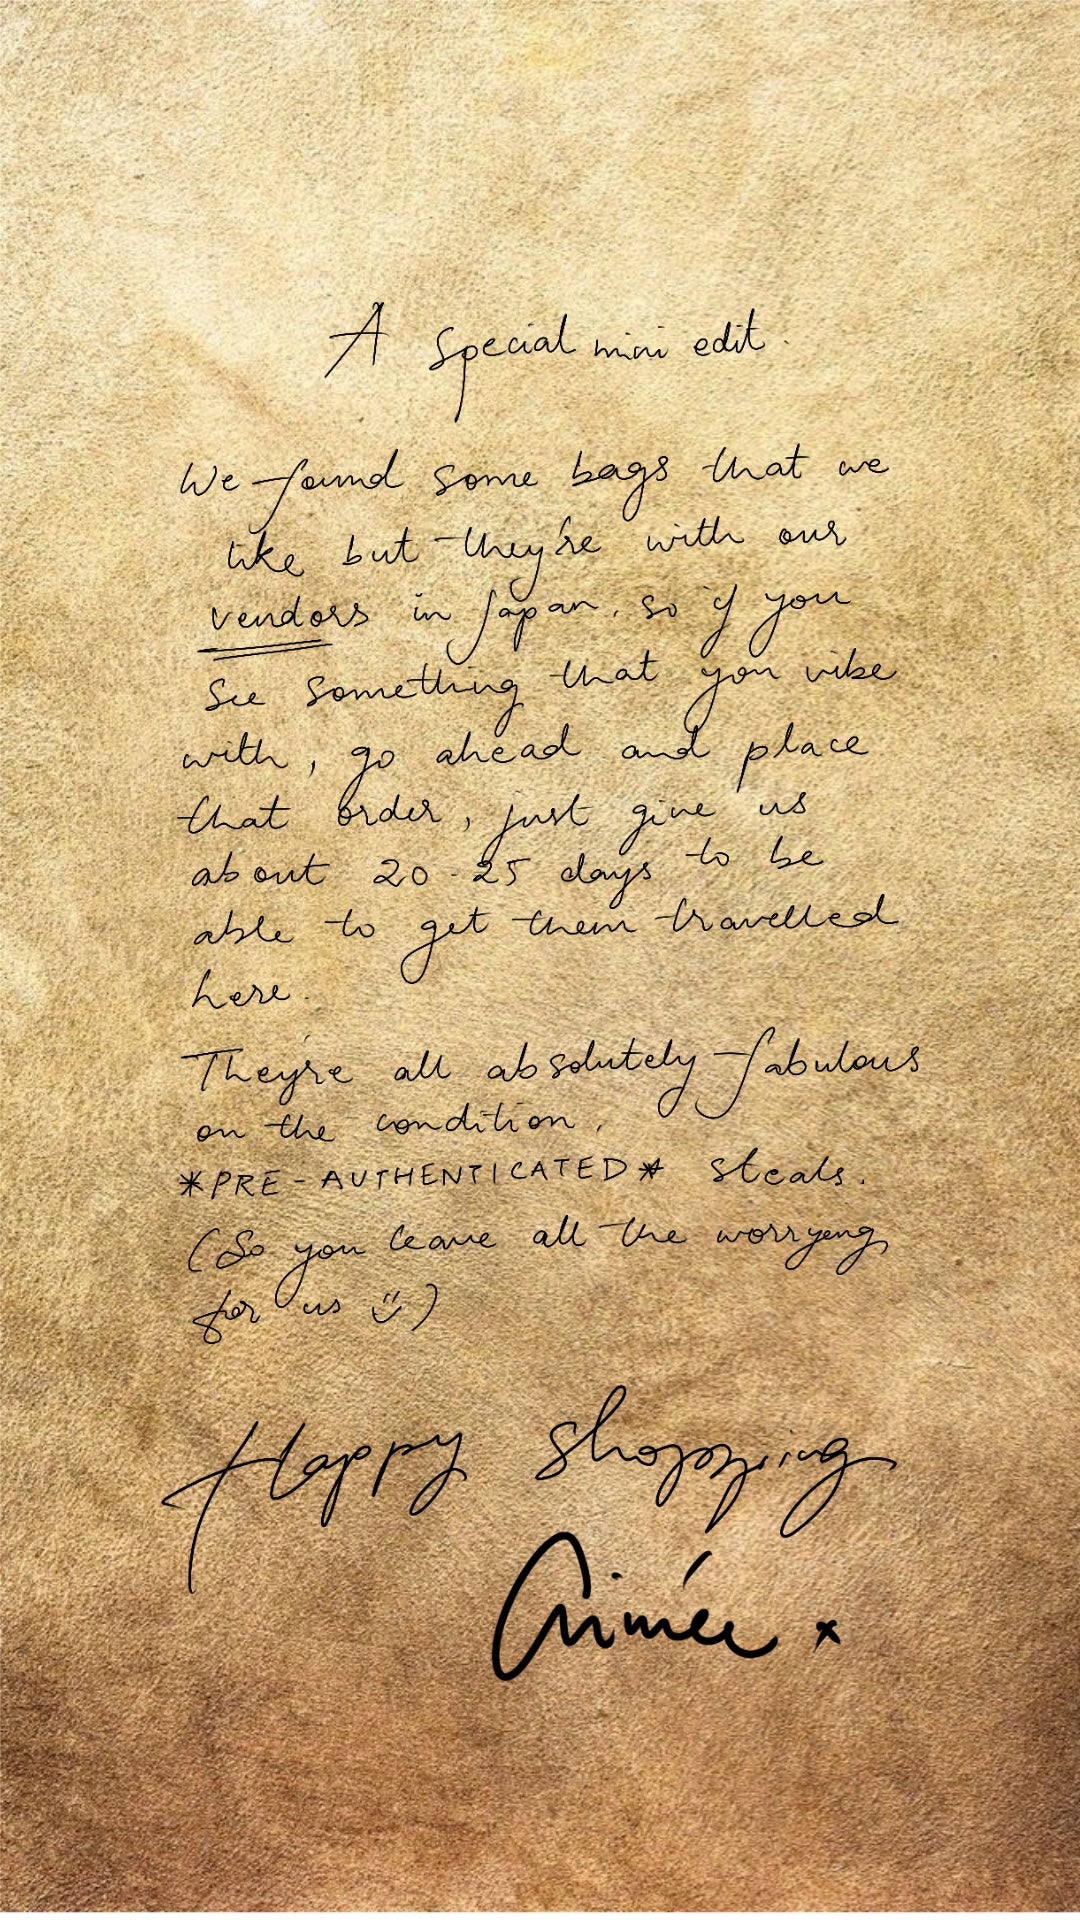 A special mini edit.
We found some bags that we
like but they're with our
vendors in Japan, so if you
see something that you vibe
with, go ahead and place
that order, just give us
about 20-25 days to be
able to get them travelled
here.
They're all absolutely fabulous
on the condition,
*PRE-AUTHENTICATED* steals.
(So you leave all the worryeng
for us :))
Happy Shopping
Aimée x